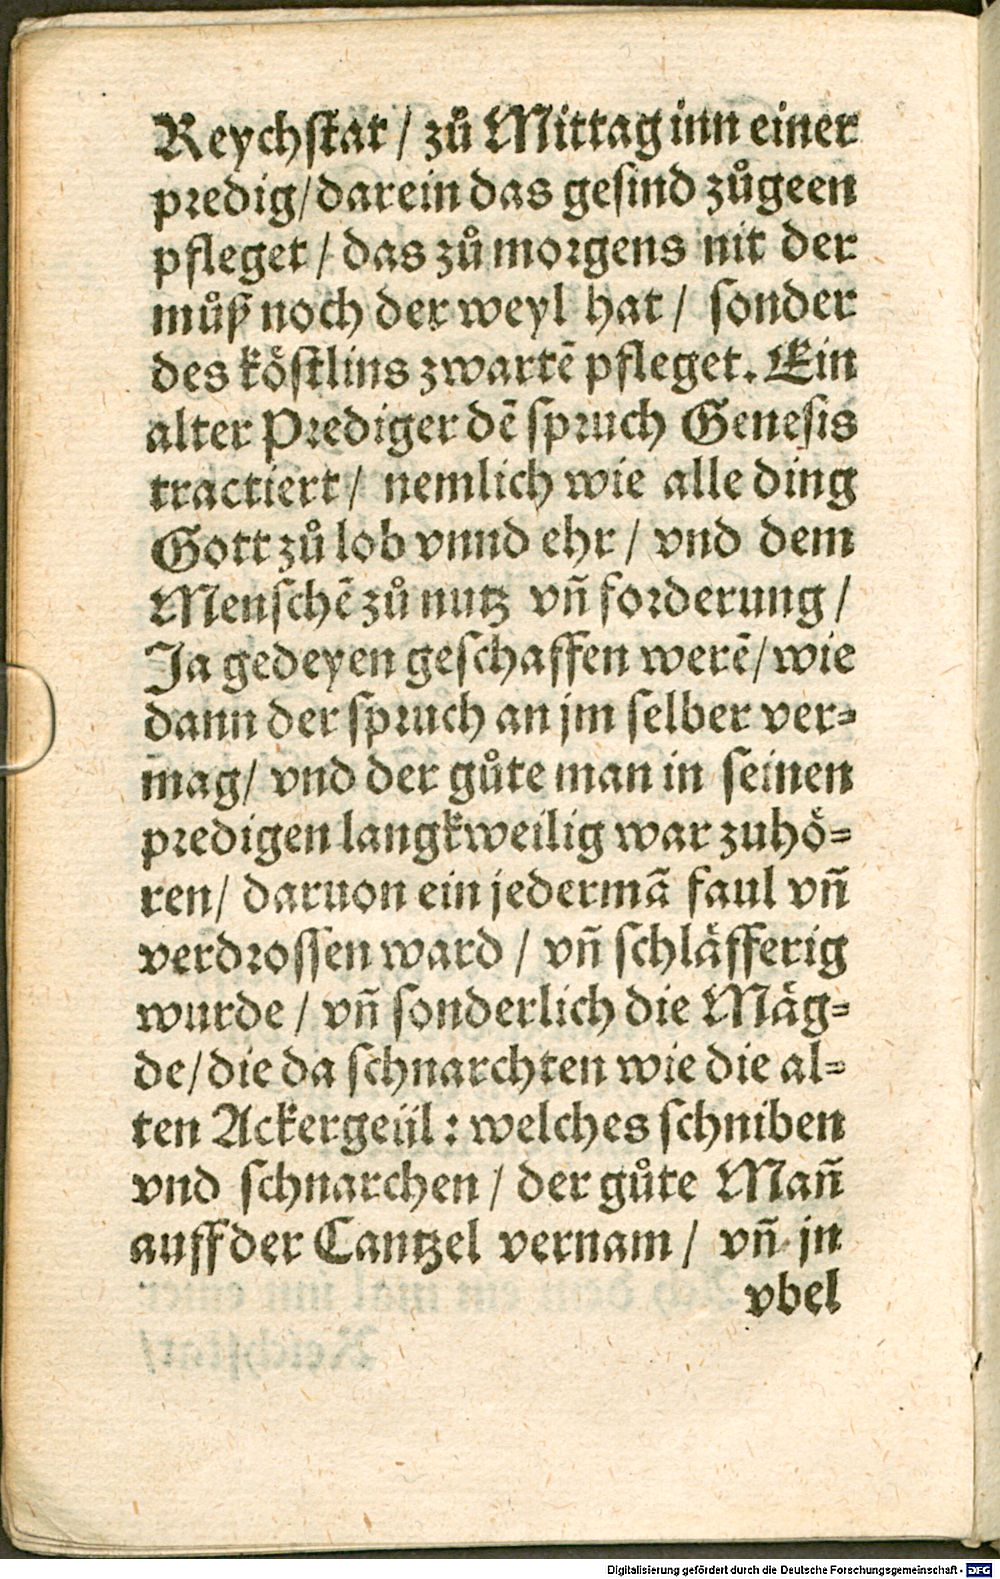 Reychſtat / zů Mittag inn einer
predig/darein das geſind zůgeen
pfleget / das zů morgens nit der
můſz noch der weyl hat / ſonder
des köſtlins zwartē pfleget. Ein
alter Prediger dē ſpruch Geneſis
tractiert / nemlich wie alle ding
Gott zů lob vnnd ehr / vnd dem
Menſchē zů nutz vñ forderung /
Ja gedeyen geſchaffen werē/wie
dann der ſpruch an jm ſelber ver⸗
mag/ vnd der gůte man in ſeinen
predigen langkweilig war zuhö⸗
ren/ daruon ein jedermā faul vñ
verdroſſen ward / vñ ſchläfferig
wurde / vñ ſonderlich die Mäg⸗
de/die da ſchnarchten wie die al⸗
ten Ackergeül : welches ſchniben
vnd ſchnarchen / der gůte Mañ
auff der Cantzel vernam / vñ jn
vbel
Digitalisierung gefördert durch die Deutsche Forschungsgemeinschaft - DFG